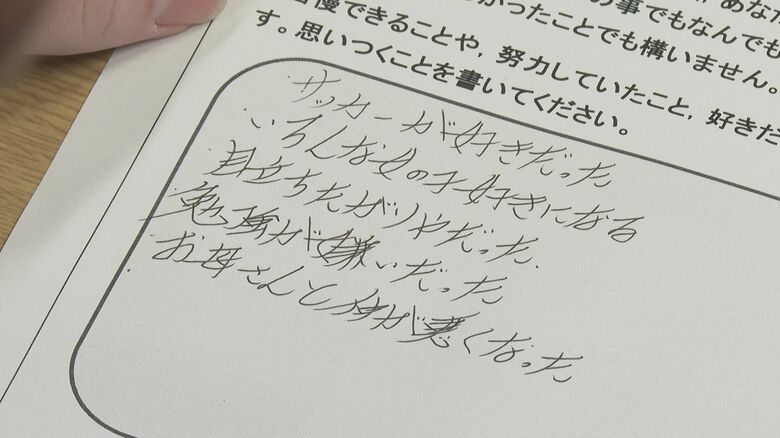 の事でもなんでも
かったことでも構いません。
自慢できることや，努力していたこと，好きだ
す。思いつくことを書いてください。
・サッカーが好きだった
・いろんな女の子好きになる
・目立ちたがりやだった.
・勉強が嫌いだった
・お母さんと仲が悪くなった